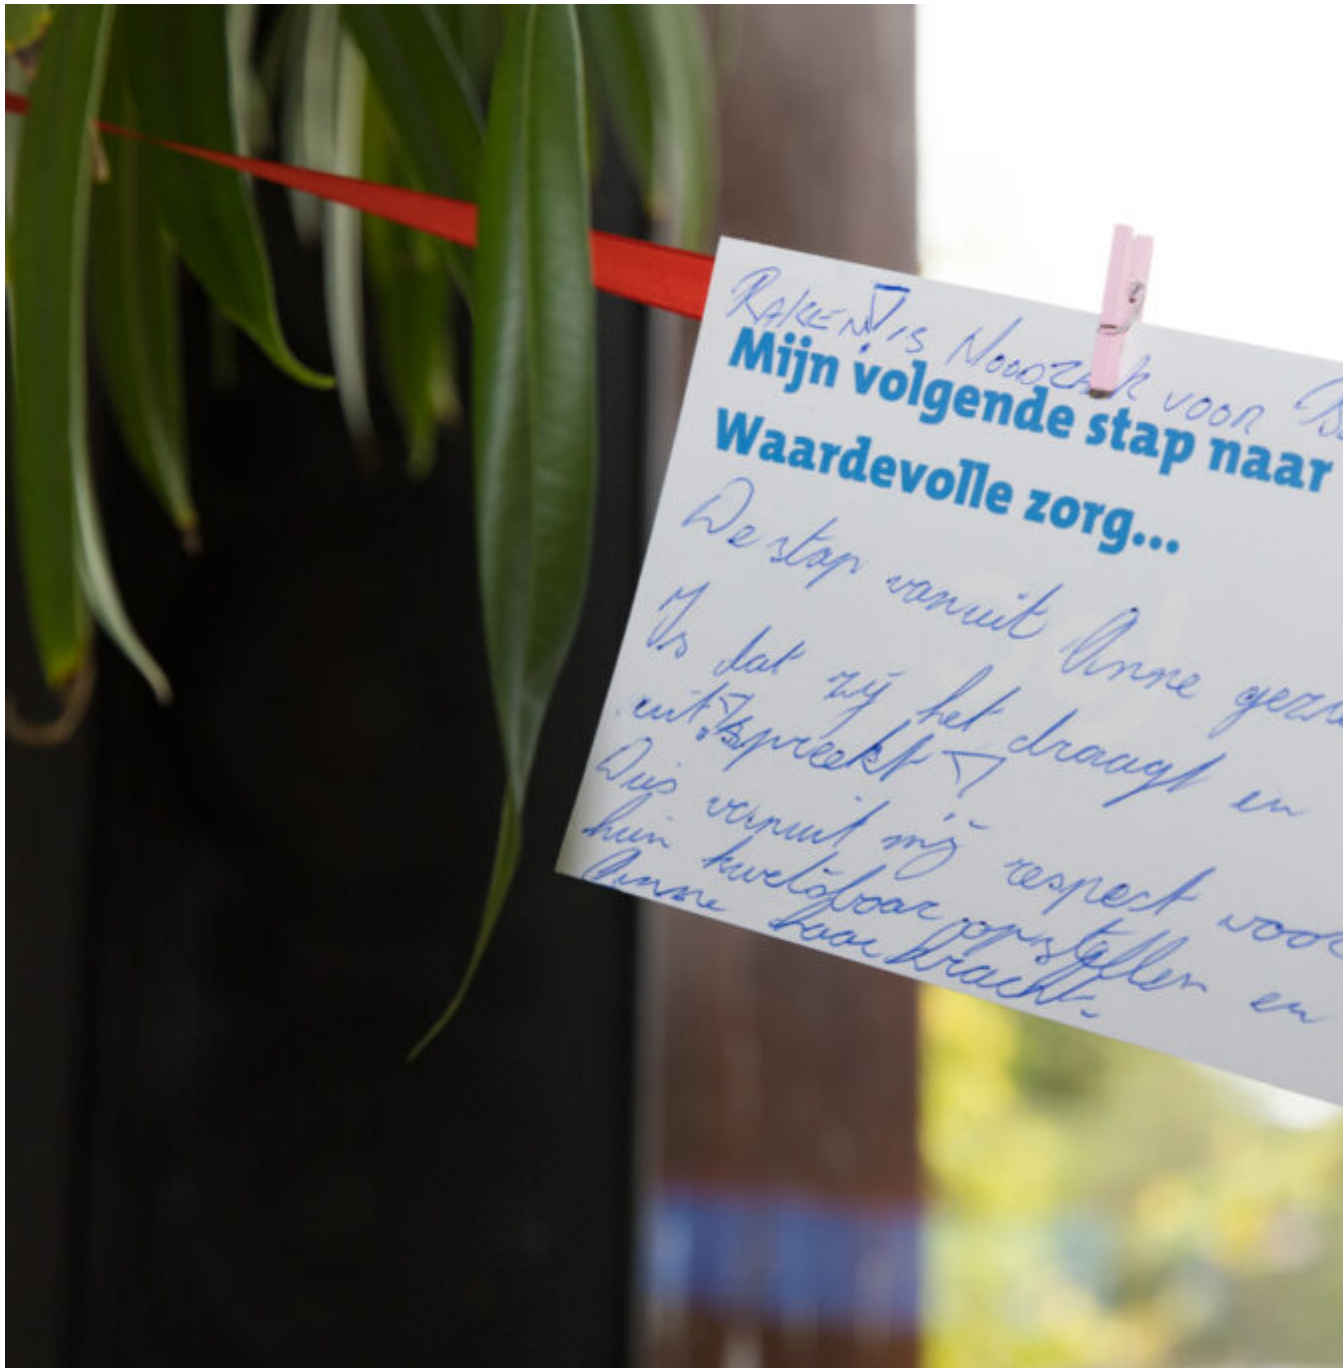 RAKEN! is NOODZAAK voor
Mijn volgende stap naar
Waardevolle zorg...
De stap vanuit Anne
Is dat zij het draagt en
uitspreekt
Dus vanuit mij respect voor
hun kwetsbaar opstellen en
Anne haar kracht.